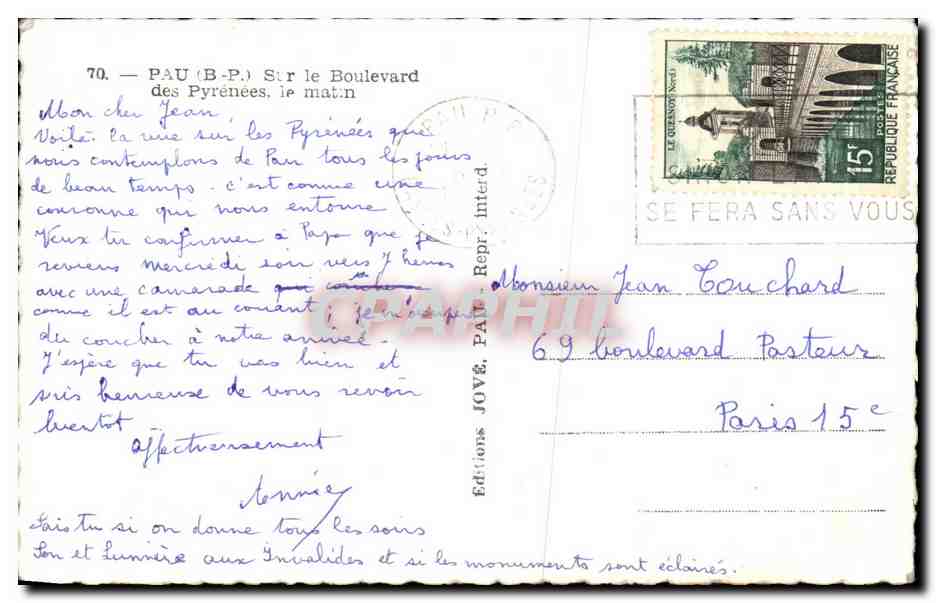 70. — PAU (B-P.) Sur le Boulevard
des Pyrénées, le matin
Mon cher Jean
Voilà la vue sur les Pyrénées que
nous contemplons de Pau tous les jours
de beau temps. c'est comme une
couronne qui nous entoure
Veux tu confirmer à Papa que je
reviens mercredi soir vers 7 heures
avec une camarade
comme il est au courant ; je m'occuperai
du coucher à notre arrivée.
J'espère que tu vas bien et
suis heureuse de vous revoir
bientôt
Affectueusement
Annie
Sais tu si on donne tous les soirs
Son et Lumière aux Invalides et si les monuments sont éclairés.
Editions JOVÉ, PAU - Repr. interd.
PAU
LE QUESNOY (Nord)
15F
POSTES
REPUBLIQUE FRANÇAISE
SE FERA SANS VOUS
Monsieur Jean Touchard
69 boulevard Pasteur
Paris 15e
CPAPHIL